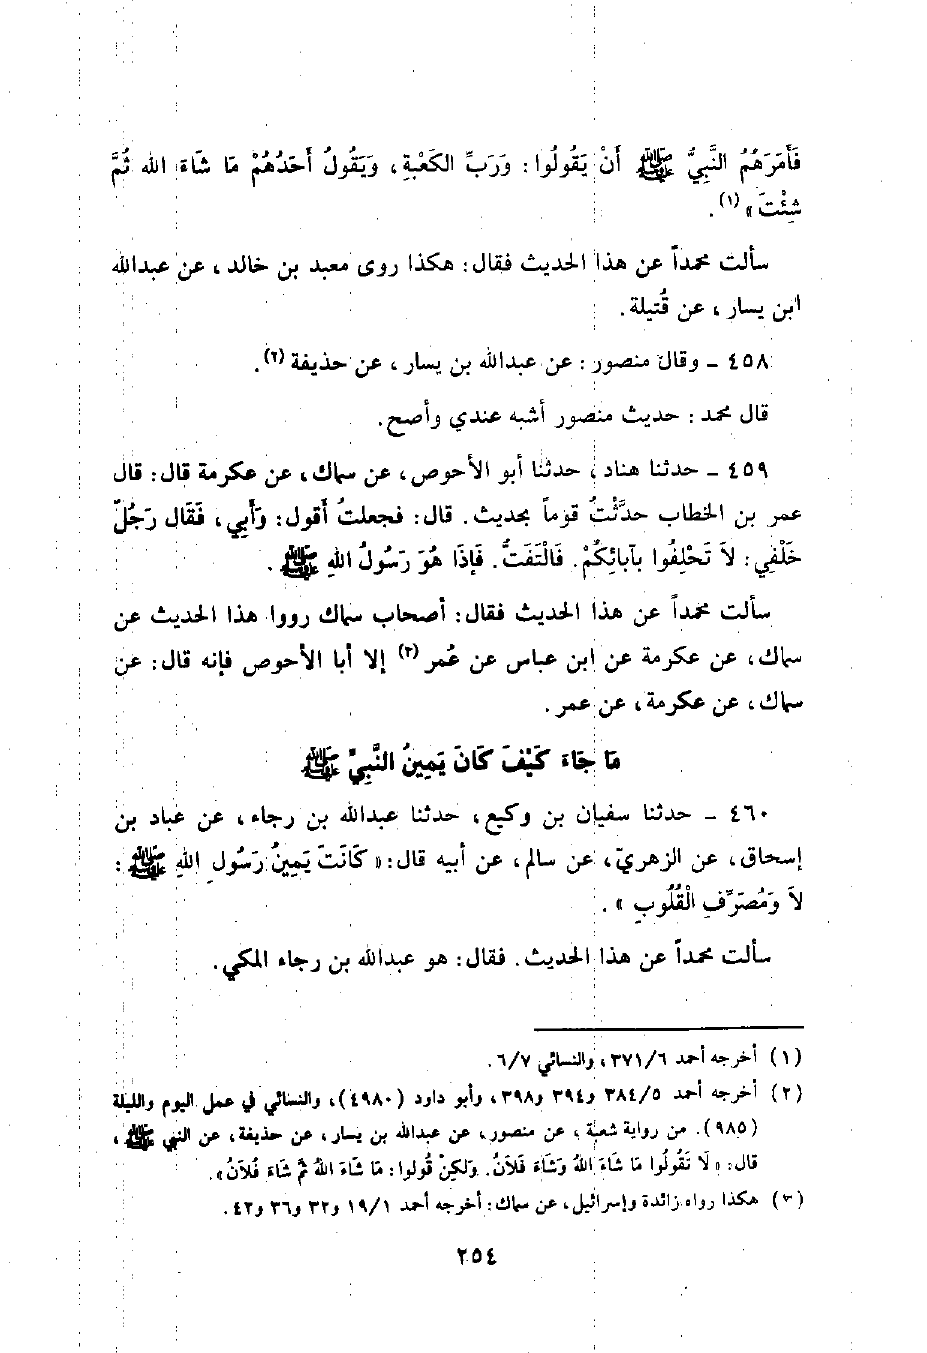 فَأَمَرَهُمُ النَّبِيُّ ﷺ أَنْ يَقُولُوا: وَرَبِّ الكَعْبَةِ، وَيَقُولُ أَحَدُهُمْ مَا شَاءَ الله ثُمَّ
شِئْتَ» (١).
سألت محمداً عن هذا الحديث فقال: هكذا روى معبد بن خالد، عن عبدالله
ابن يسار، عن قُتيلة.
٤٥٨ ـ وقال منصور: عن عبدالله بن يسار، عن حذيفة (٢).
قال محمد: حديث منصور أشبه عندي وأصح.
٤٥٩ ـ حدثنا هناد، حدثنا أبو الأحوص، عن سماك، عن عكرمة قال: قال
عمر بن الخطاب حدَّثْتُ قوماً بحديث. قال: فجعلتُ أقول: وَأَبِي، فَقَال رَجُلٌ
خَلْفِي: لاَ تَحْلِفُوا بآبائِكُمْ. فَالْتَفَتُّ. فَإِذَا هُوَ رَسُولُ اللهِ ﷺ.
سألت محمداً عن هذا الحديث فقال: أصحاب سماك رووا هذا الحديث عن
سماك، عن عكرمة عن ابن عباس عن عُمر (٣) إلا أبا الأحوص فإنه قال: عن
سماك، عن عكرمة، عن عمر.
مَا جَاءَ كَيْفَ كَانَ يَمِينُ النَّبِيِّ ﷺ
٤٦٠ ـ حدثنا سفيان بن وكيع، حدثنا عبدالله بن رجاء، عن عباد بن
إسحاق، عن الزهريّ، عن سالم، عن أبيه قال: «كَانَتَ يَمِينُ رَسُولِ اللهِ ﷺ:
لاَ وَمُصَرِّفِ الْقُلُوبِ».
سألت محمداً عن هذا الحديث. فقال: هو عبدالله بن رجاء المكي.
(١) أخرجه أحمد ٣٧١/٦، والنسائي ٦/٧.
(٢) أخرجه أحمد ٣٨٤/٥ و٣٩٤ و٣٩٨، وأبو داود (٤٩٨٠)، والنسائي في عمل اليوم والليلة
(٩٨٥). من رواية شعبة، عن منصور، عن عبدالله بن يسار، عن حذيفة، عن النبي ﷺ،
قال: «لَا تَقُولُوا مَا شَاءَ اللهُ وَشَاءَ فَلاَنُ. وَلكِنْ قُولوا: مَا شَاءَ اللهُ ثمَّ شَاءَ فُلاَنُ».
(٣) هكذا رواه زائدة وإسرائيل، عن سماك: أخرجه أحمد ١٩/١ و٣٢ و٣٦ و٤٢.
٢٥٤